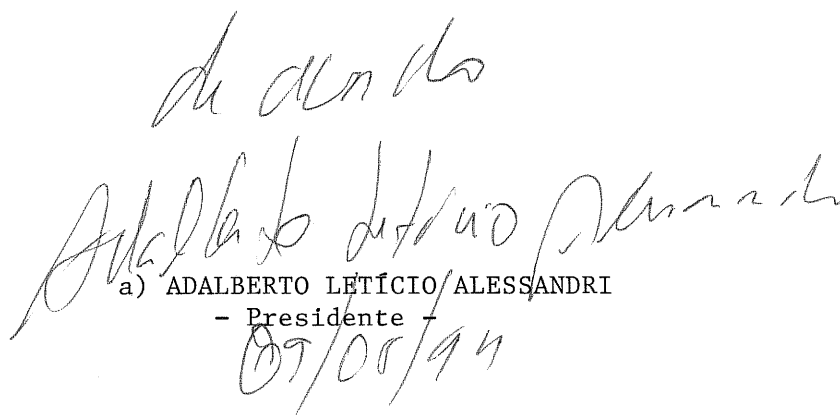 de acordo
Adalberto Letício Alessandri
a) ADALBERTO LETÍCIO ALESSANDRI
- Presidente -
09/08/94